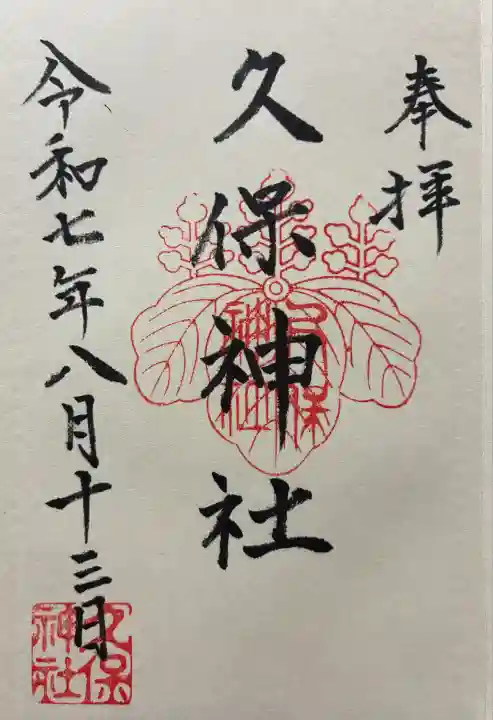 奉拝
久保神社
久保神社
令和七年八月十三日
久保神社